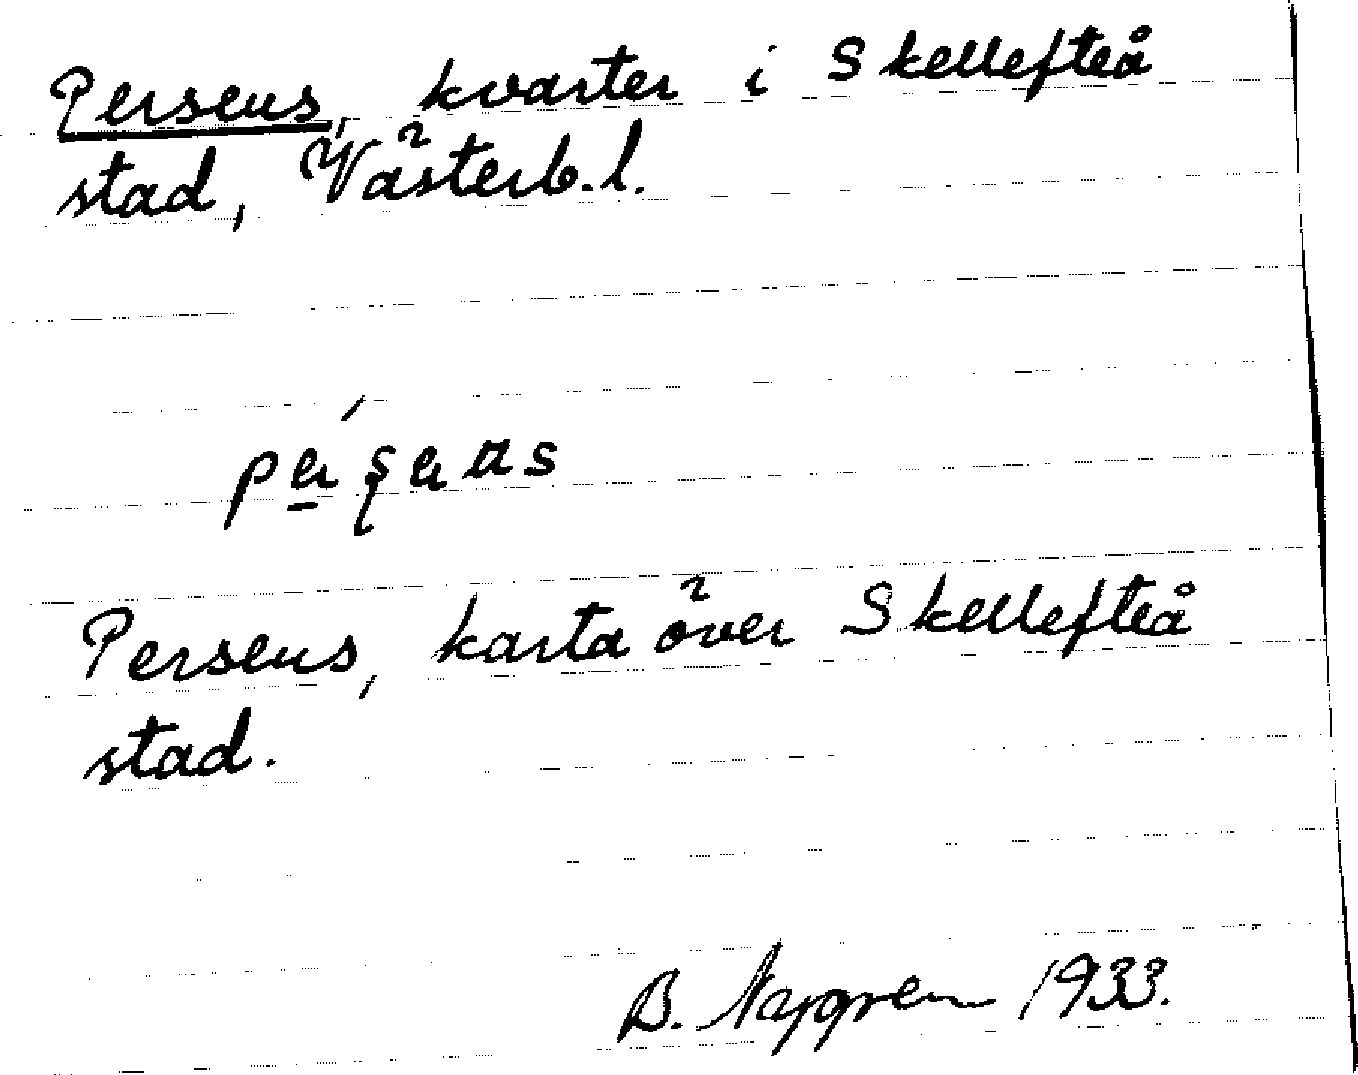 Perseus, kvarter i Skellefteå
stad, Västerb.l.
Perseus, karta över Skellefteå
stad.
B. 1933.